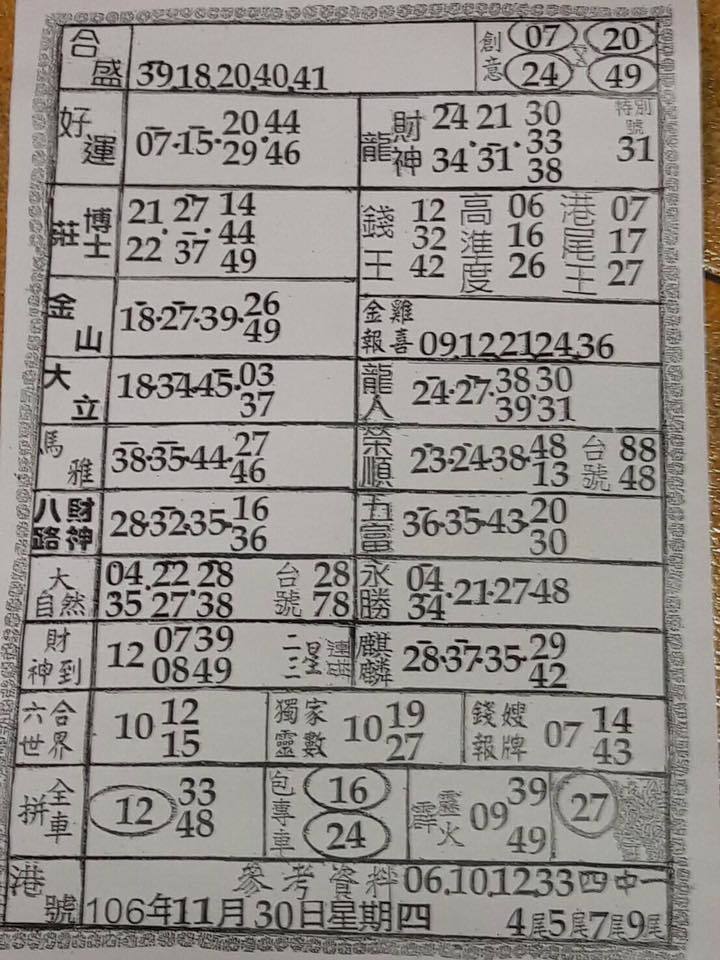 合盛 39.18.20.40.41
創意 07 20 24 49
好運 07·15·20 44 29·46
財神龍 24 21 30 34·31·33 38
特別號 31
博士莊 21 27 14 22·37·44 49
錢王 12 32 42
高進度 06 16 26
港尾王 07 17 27
金山 18·27·39·26 49
金雞報喜 09.12.21.24.36
大立 18·34·45·03 37
龍人 24·27·38 30 39·31
馬雅 38·35·44·27 46
榮順 23·24·38·48 13
台號 88 48
八路財神 28·32·35·16 36
五富 36·35·43·20 30
大自然 04.22 28 35 27·38
台號 28 78
永勝 04 34·21·27·48
財神到 12 07 39 08 49
二三星
麒麟 28·37·35·29 42
六合世界 10 12 15
獨家靈數 10 19 27
錢嫂報牌 07 14 43
全車拼 12 33 48
包專車 16 24
靈火霹 09 39 49
27
港號 參考資料 06.10.12.33 四中一
106年11月30日星期四 4尾5尾7尾9尾